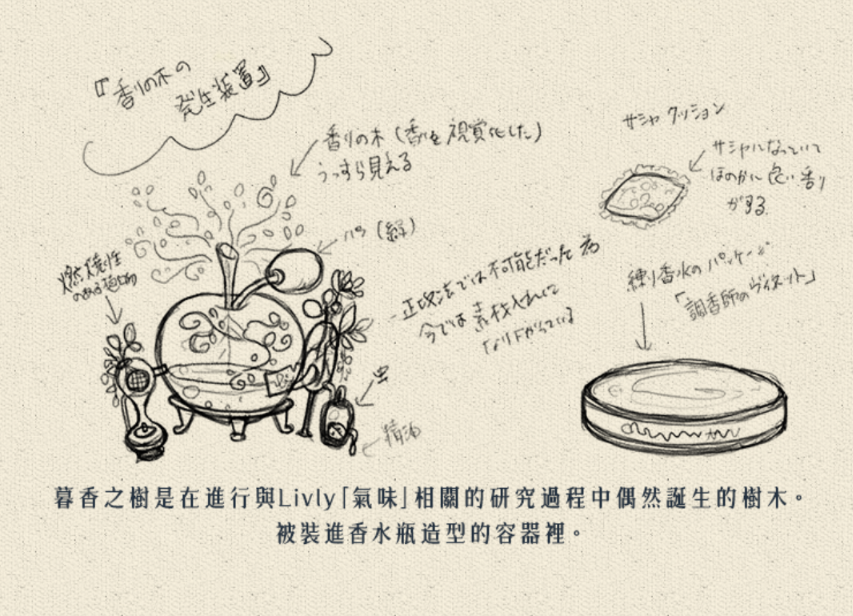 『香りの木の
発生装置』
香りの木（香りを視覚化した）
うっすら見える
サシャクッション
サシャになっていて
ほのかに良い香り
がする
燃焼性
のある植物
正攻法では不可能だった為
今では素材入れに
なり下がっている
練り香水のパッケージ
「調香師のヴィネット」
虫
精油
暮香之樹是在進行與Livly「氣味」相關的研究過程中偶然誕生的樹木。
被裝進香水瓶造型的容器裡。